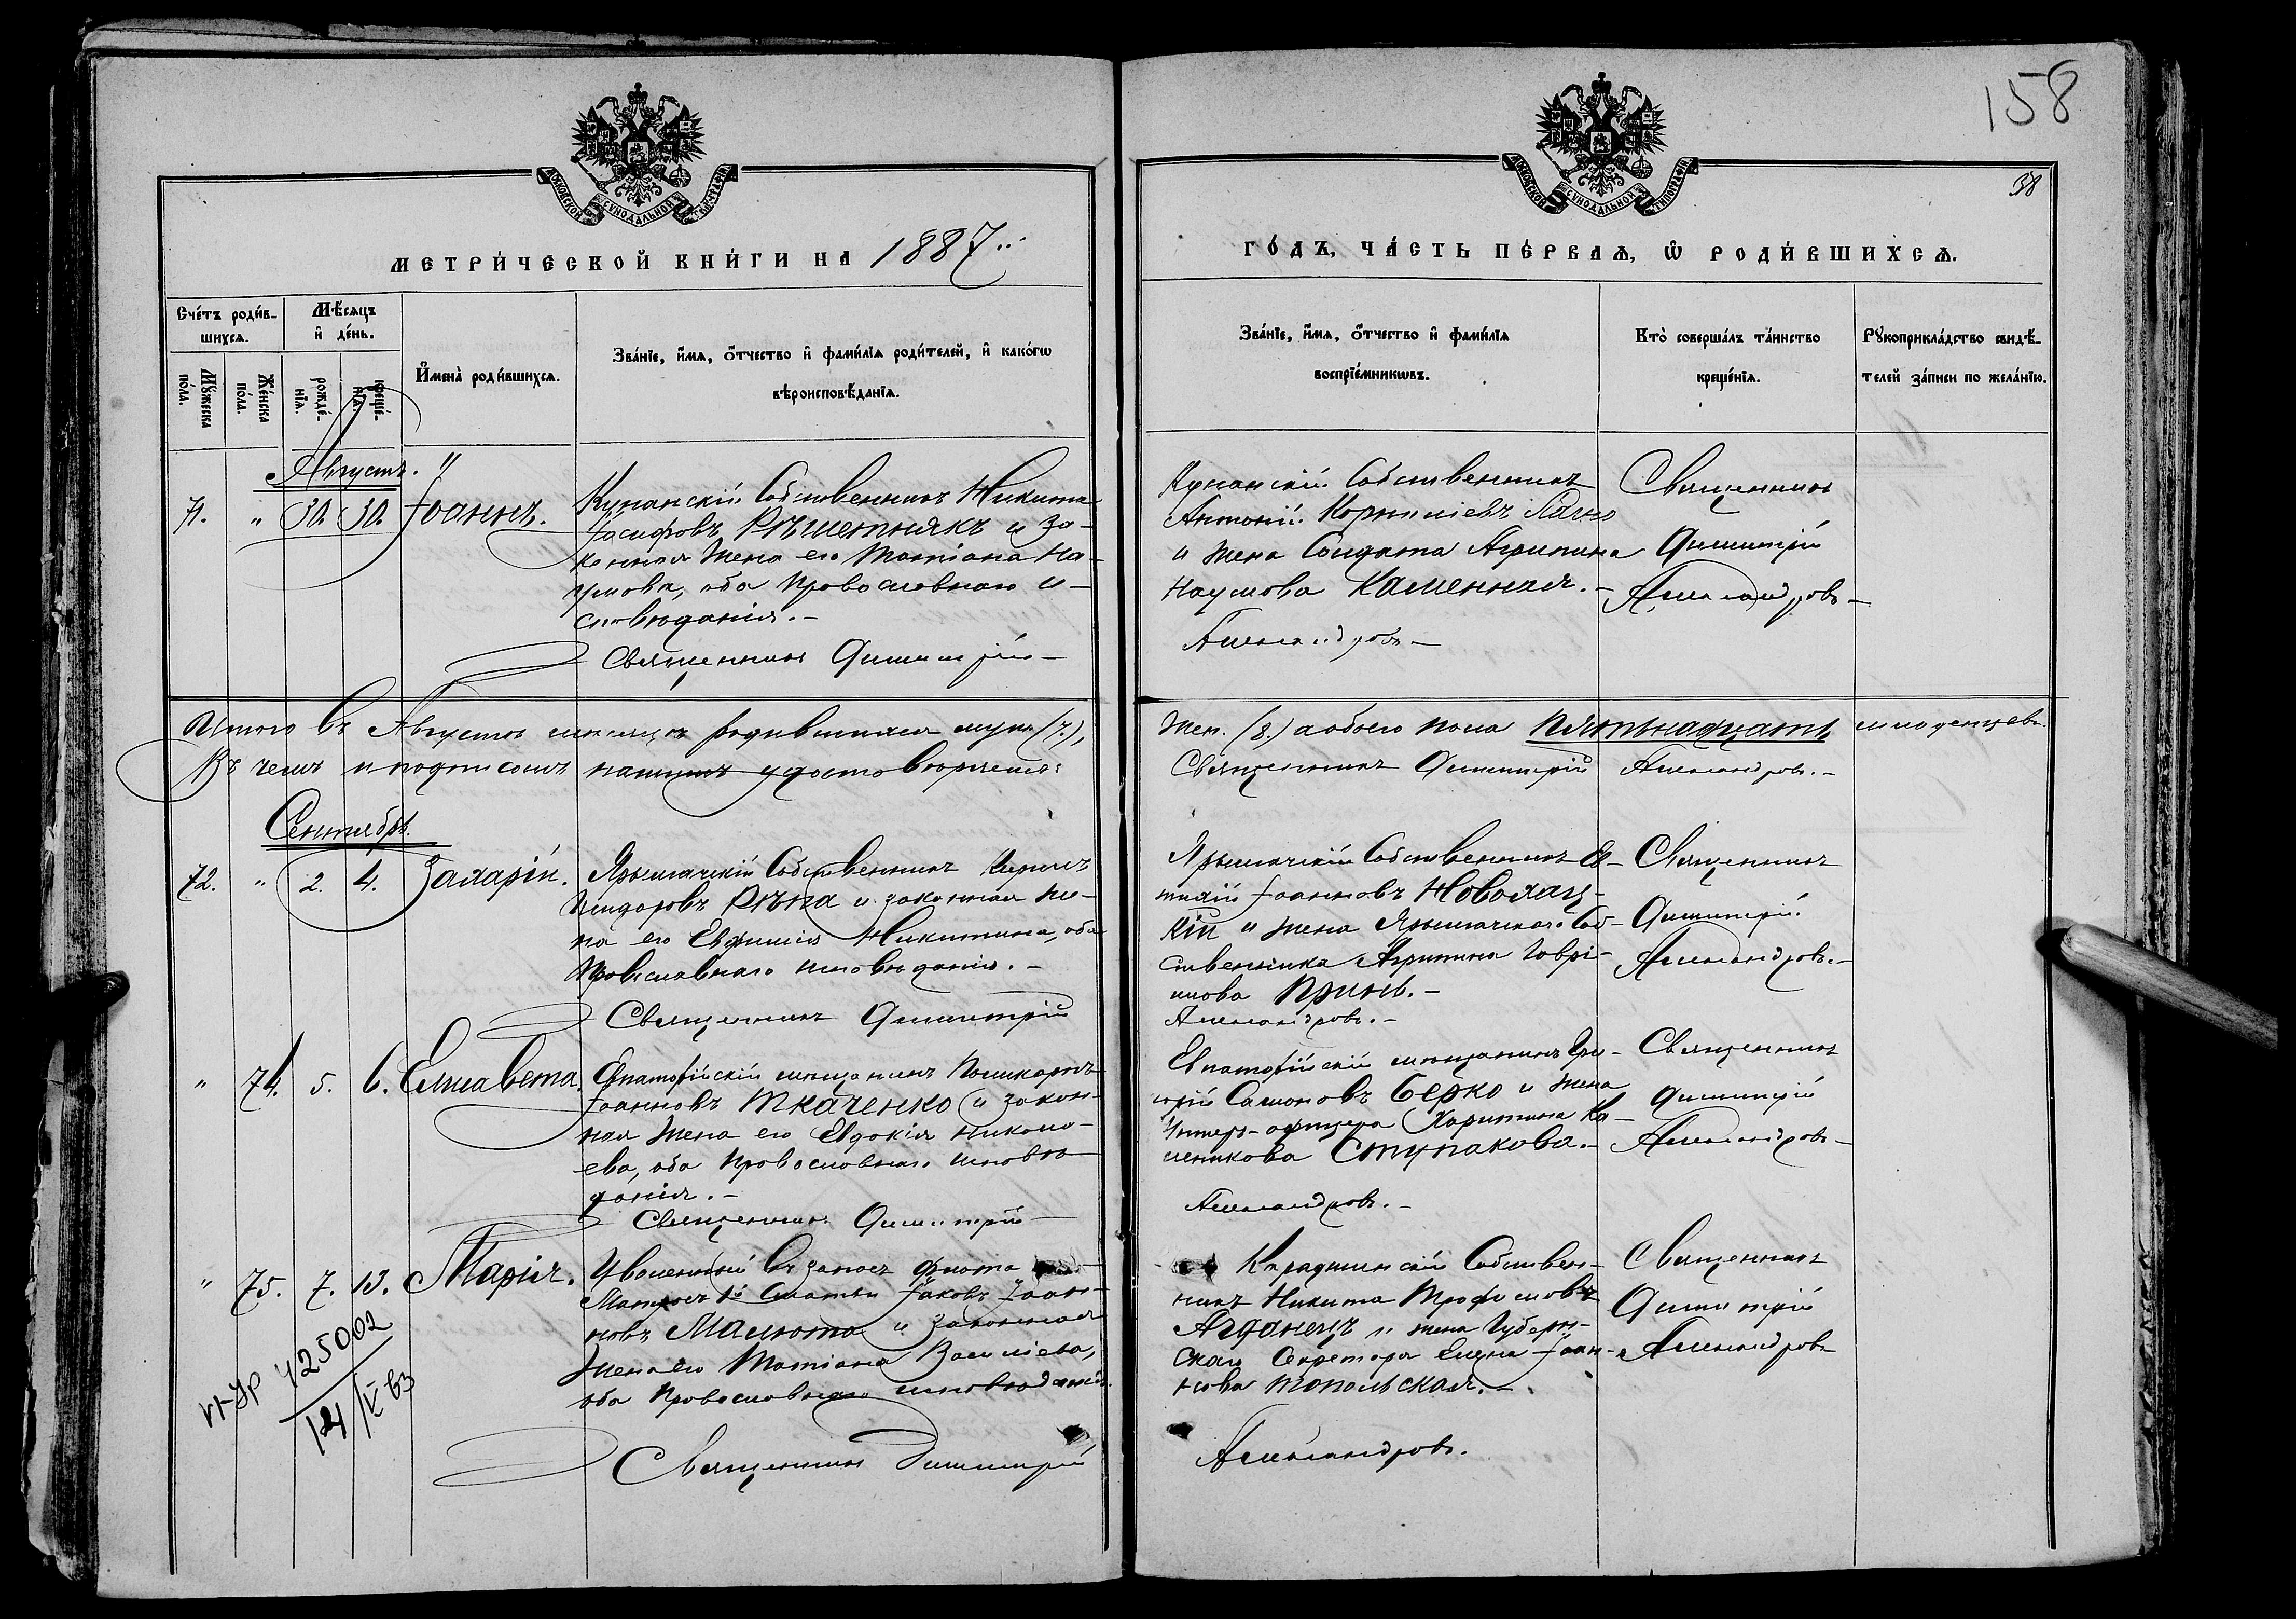 158
38
МОСКОВСКОЙ СѴНОДАЛЬНОЙ ТИПОГРАФІИ
МОСКОВСКОЙ СѴНОДАЛЬНОЙ ТИПОГРАФІИ
МЕТРИ́ЧЕСКОЙ КНИ́ГИ НА 1887
ГО́ДЪ, ЧА́СТЬ ПЕ́РВАѦ, Ѽ РОДИ́ВШИХСѦ.
Сче́тъ роди́в-
шихсѧ.
Мꙋ́жеска
по́ла.
Же́нска
по́ла.
Мѣ́сѧцъ
и҆ де́нь.
рожде́-
нїѧ.
креще́-
нїѧ.
И҆мена̀ роди́вшихсѧ.
Зва́нїе, и҆́мѧ, ѻ҆́тчество и҆ фами́лїѧ роди́телей, и҆ како́гѡ
вѣроисповѣ́данїѧ.
Зва́нїе, и҆́мѧ, ѻ҆́тчество и҆ фами́лїѧ
воспрїе́мникѡвъ.
Кто̀ соверша́лъ та́инство
креще́нїѧ.
Рꙋкоприкла́дство свидѣ́-
телей за́писи по жела́нїю.
Августъ.
71. " 30. 30. Іоаннъ.
Купанскій Собственникъ Никита
Іосифовъ Рѣшетнякъ и за-
конная жена его Татіана На-
умова, оба Православнаго и-
сповѣданія.-
Священникъ Димитрій-
Купанскій Собственникъ
Антоній Корниліевъ
и жена Солдата Агрипина
Наумова Каменная.-
Александровъ-
Священникъ
Димитрій
Александровъ-
Итого въ Августѣ мѣсяцѣ родившихся муж. (7.),
жен. (8.) а обоего пола пятьнадцать младенцевъ.
Въ чемъ и подписомъ нашимъ удостовѣряемъ:
Священникъ Димитрій Александровъ.-
Сентябрь.
72. " 2. 4. Захарій.
Ярылгачскій Собственникъ Кирилъ
Исидоровъ Рѣпа и законная же-
на его Евфимія Никитина, оба
Православнаго исповѣданія.-
Священникъ Димитрій
Ярылгачскій Собственникъ Ев-
тихій Іоанновъ Новохац-
кій и жена Ярылгачскаго Соб-
ственника Агрипина Гаврі-
илова Принь.-
Александровъ.-
Священникъ
Димитрій
Александровъ.-
" 74. 5. 6. Елисавета.
Евпаторійскій мѣщанинъ Поликарпъ
Іоанновъ Ткаченко и закон-
ная жена его Евдокія Никола-
ева, оба Православнаго исповѣ-
данія.-
Священникъ Димитрій-
Евпаторійскій мѣщанинъ Гри-
горій Самоновъ Берко и жена
Унтеръ-офицера Харитина Ка-
леникова Ступакова.-
Александровъ.-
Священникъ
Димитрій
Александровъ-
" 75. 7. 13. Марія.
Уволенный въ запасъ флота
Матросъ 1й Статьи Іаковъ Іоан-
новъ Малюта и законная
жена его Татіана Василіева,
оба Православнаго исповѣданія.
Священникъ Димитрій
Караджинскій Собствен-
никъ Никита Трофимовъ
Агданецъ и жена Губерн-
скаго Секретаря Елена Іоан-
нова Топольская.-
Александровъ.
Священникъ
Димитрій
Александровъ
425002